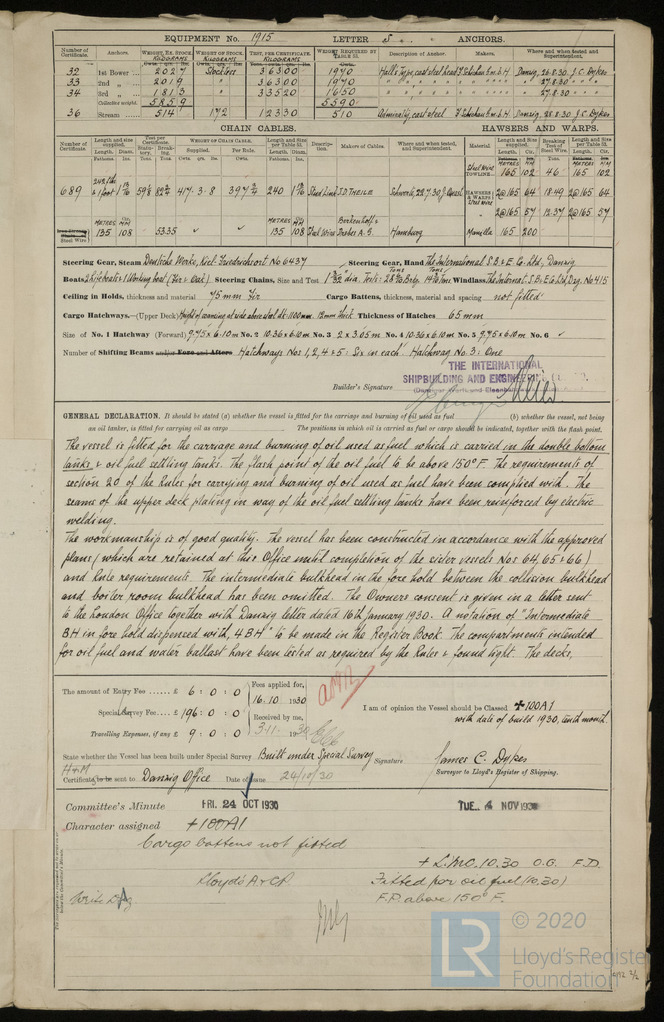 EQUIPMENT No. 1915 LETTER 5 ANCHORS.
Number of Certificate. Anchors. WEIGHT, EX. STOCK KILOGRAMS WEIGHT OF STOCK. KILOGRAMS TEST, PER CERTIFICATE. KILOGRAMS WEIGHT REQUIRED BY TABLE 53. Description of Anchor. Makers. Where and when tested and Superintendent.
32 1st Bower 2027 Stockless 36300 1970 Danzig, 26.8.30. J.C. Dykes
33 2nd " 2019 " 36300 1970 " 27.8.30 "
34 3rd " 1813 " 33520 1650 " 27.8.30 "
Collective weight. 5859 5590
36 Stream 514 172 12330 510 Admiralty, cast steel Danzig, 28.8.30 J.C. Dykes
CHAIN CABLES. HAWSERS AND WARPS.
Number of Certificate. Length and size supplied. Test per Certificate. WEIGHT OF CHAIN CABLE. Length and size per Table 53. Description. Makers of Cables. Where and when tested, and Superintendent. Material. Length and Size supplied. Breaking Test of Steel Wire. Length and size per Table 53.
TOWLINE 165 102 46 165 102
689 417.3.8 240 Stud Link J.D. THEILE Schwerte, 22.7.30 HAWSERS & WARPS 2@165 64 18.49 2@165 64
2@165 57 12.37 2@165 57
Steel Wire 135 108 53.35 135 108 Steel Wire Hamburg Manilla 165 200
Steering Gear, Steam Deutsche Werke, Kiel-Friedrichsort No 6437 Steering Gear, Hand The International S.B. & E. Co. Ltd., Danzig
Boats 2 lifeboats & 1 Working boat (Fir & Oak) Steering Chains, Size and Test Windlass
Ceiling in Holds, thickness and material 75 mm Fir Cargo Battens, thickness, material and spacing not fitted
Cargo Hatchways.—(Upper Deck) Thickness of Hatches 65 mm
Size of No. 1 Hatchway (Forward) 9.75 x 6.10m No. 2 10.36 x 6.10m No. 3 2 x 3.05m No. 4 10.36 x 6.10m No. 5 9.75 x 6.10m No. 6
Number of Shifting Beams and/or Fore and Afters Hatchways Nos 1, 2, 4 & 5: Six in each Hatchway No. 3: One
THE INTERNATIONAL
SHIPBUILDING AND ENGINEERING
Builder's Signature
GENERAL DECLARATION. It should be stated (a) whether the vessel is fitted for the carriage and burning of oil used as fuel (b) whether the vessel, not being
an oil tanker, is fitted for carrying oil as cargo The positions in which oil is carried as fuel or cargo should be indicated, together with the flash point.
The vessel is fitted for the carriage and burning of oil used as fuel, which is carried in the double bottom
tanks & oil fuel settling tanks. The flash point of the oil fuel to be above 150°F. The requirements of
section 20 of the Rules for carrying and burning of oil used as fuel have been complied with. The
seams of the upper deck plating in way of the oil fuel settling tanks have been reinforced by electric
welding.
The workmanship is of good quality. The vessel has been constructed in accordance with the approved
plans (which are retained at this Office until completion of the sister vessels Nos 64, 65 & 66)
and Rule requirements. The intermediate bulkhead in the fore hold between the collision bulkhead
and boiler room bulkhead has been omitted. The Owners consent is given in a letter sent
to the London Office together with Danzig letter dated 16th January 1930. A notation of "Intermediate
BH in fore hold dispensed with, 4 BH" to be made in the Register Book. The compartments intended
for oil fuel and water ballast have been tested as required by the Rules & found tight. The decks,
The amount of Entry Fee ...... £ 6 : 0 : 0 Fees applied for,
16.10 1930
Special Survey Fee.... £ 196 : 0 : 0 Received by me,
Travelling Expenses, if any £ 9 : 0 : 0 3.11. 1930
I am of opinion the Vessel should be Classed ✠100A1
with date of build 1930, tenth month.
State whether the Vessel has been built under Special Survey Built under Special Survey Signature James C. Dykes
Surveyor to Lloyd's Register of Shipping.
H & M
Certificate to be sent to Danzig Office Date of issue 24/10/30
Committee's Minute FRI. 24 OCT 1930 TUE. 4 NOV 1930
Character assigned +100A1
Cargo battens not fitted
+ L.M.C. 10.30 O.G. F.D.
Lloyd's A & CP Fitted for oil fuel (10.30)
F.P. above 150°F.
© 2020
LR
Lloyd's Register
Foundation